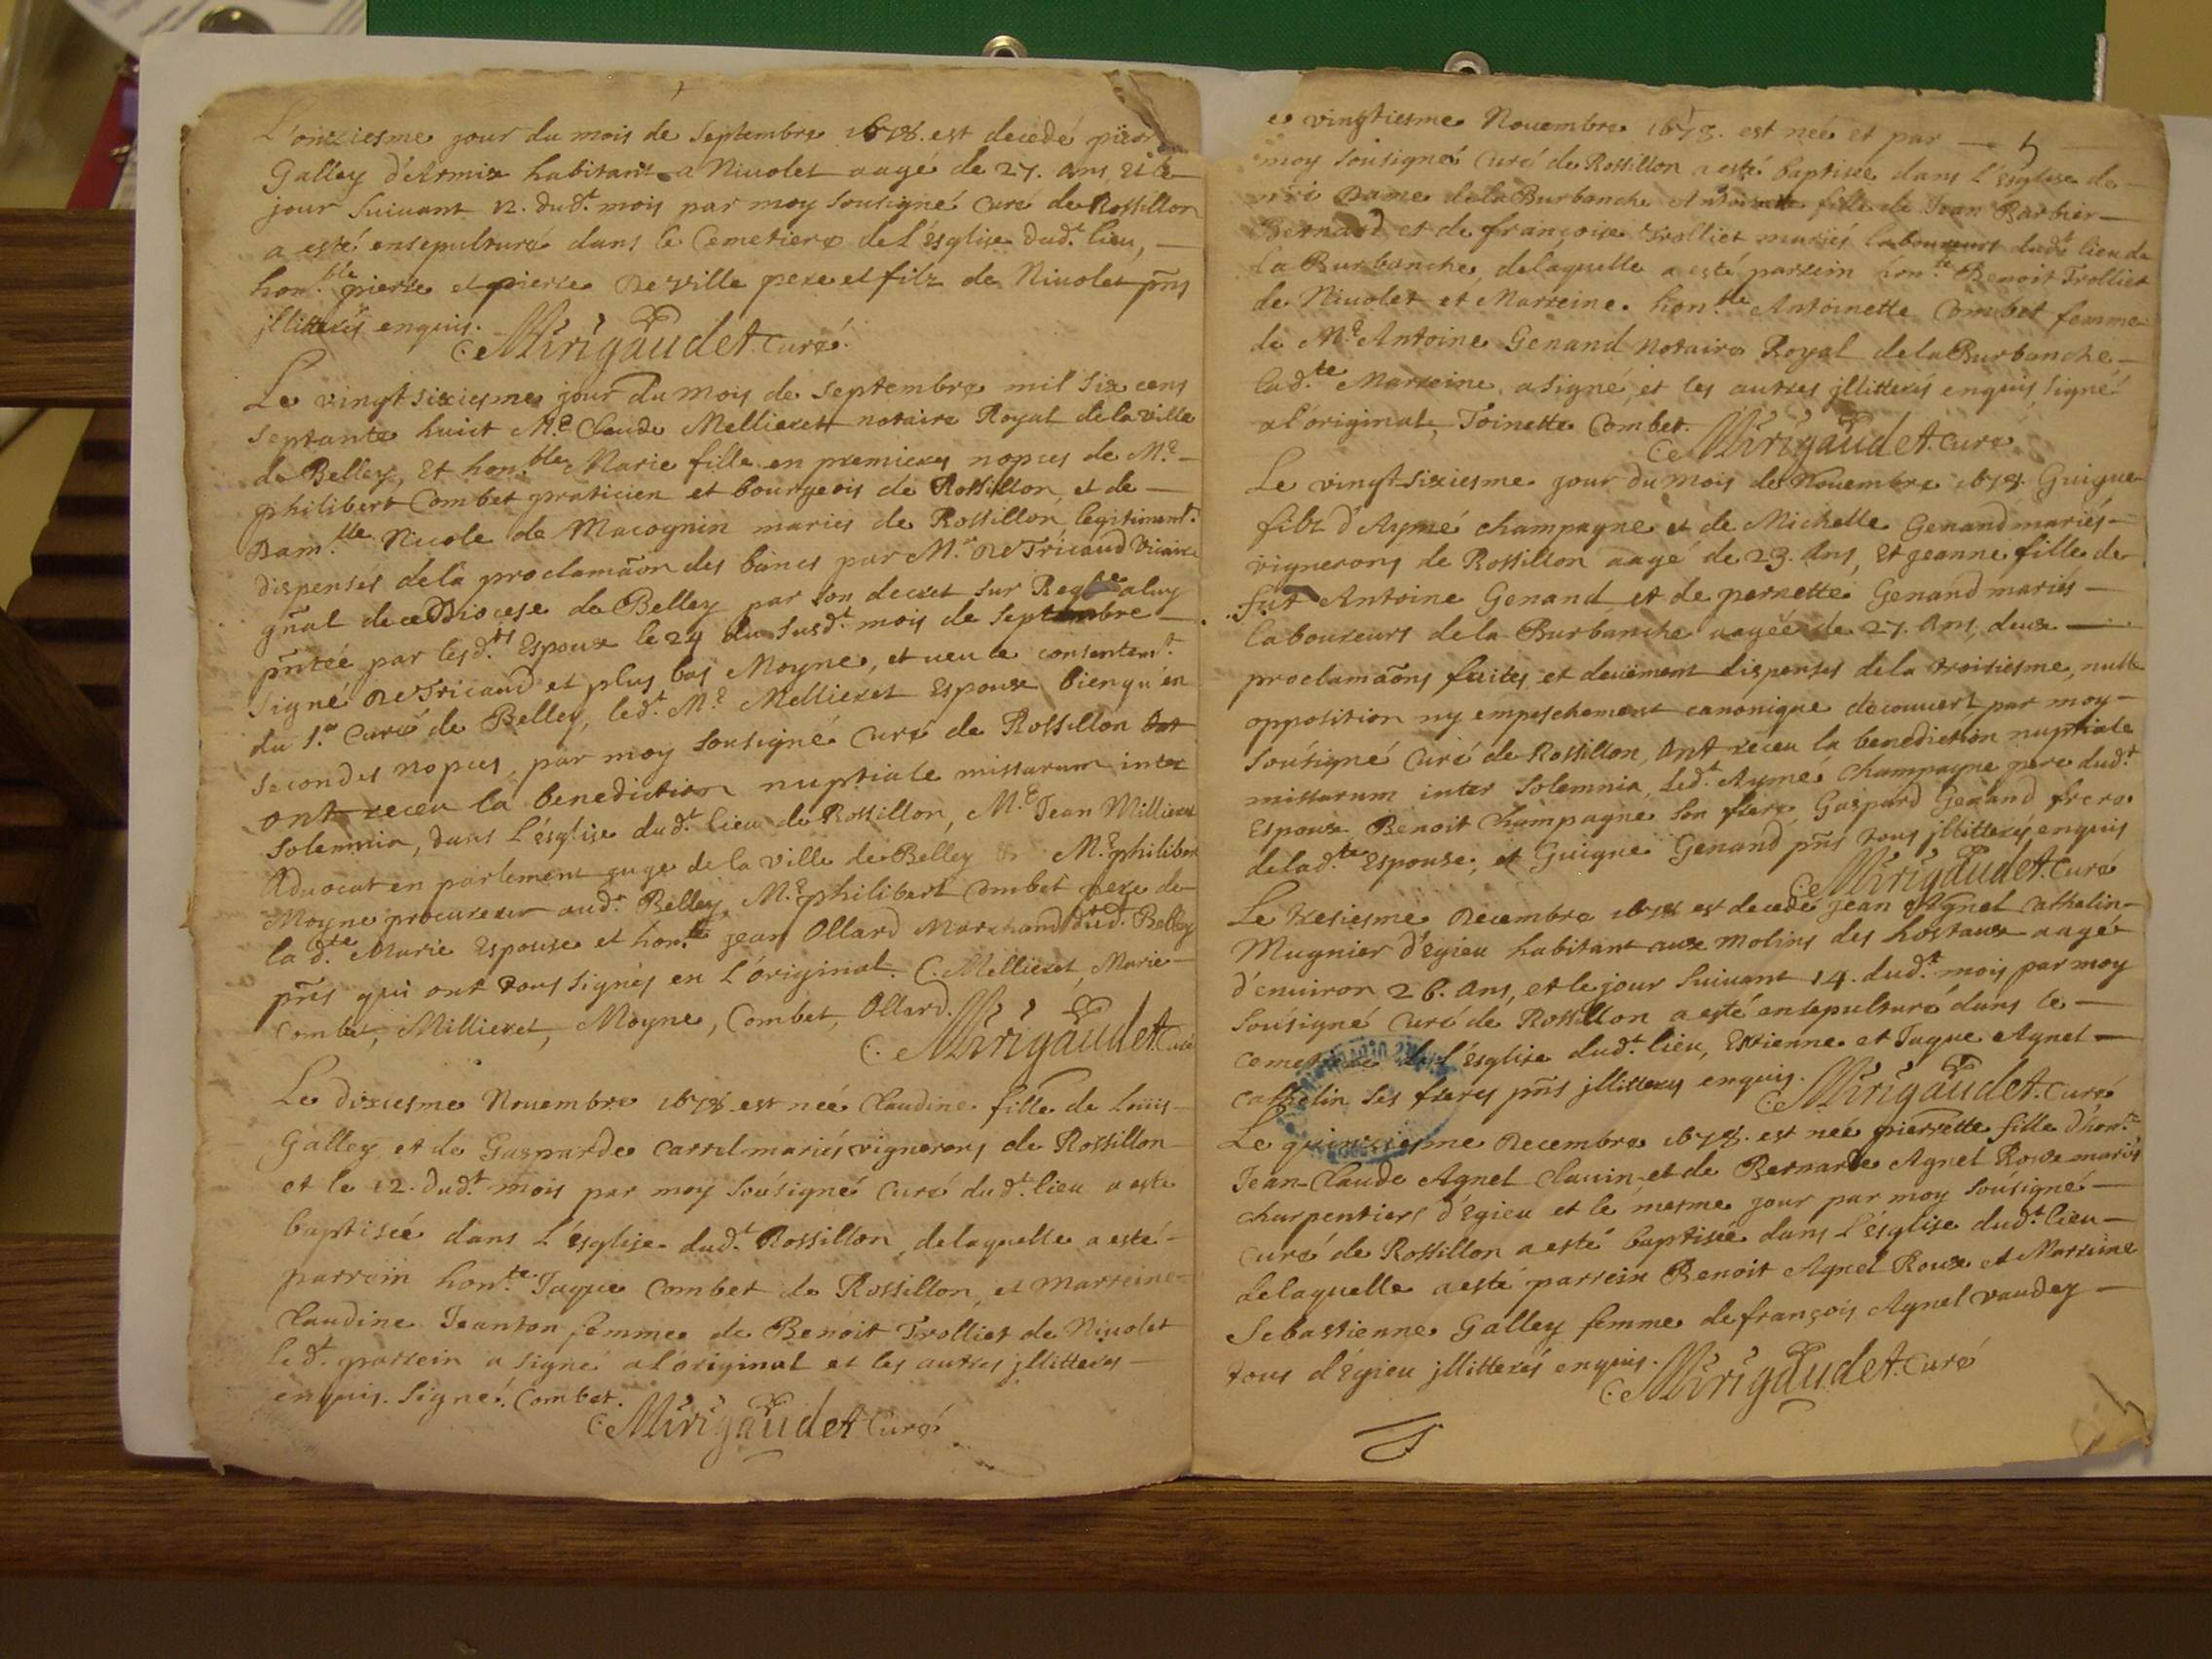 L'onziesme jour du mois de Septembre 1678. est decedé pierre
Galley d'Armix habitant a Niuolet aagé de 27. Ans, Et le
jour Suiuant 12. dud.t mois par moy Sousigné Curé de Rossillon
a esté ensepulturé dans le Cemetiere de l'ésglise dud.t lieu,
hon.ble pierre et pierre De Ville pere et filz de Niuolet pñs
jllitterés enquis. Mirigaudet Curé.
Le vingt sixiesme jour du mois de Septembre mil Six cens
Septante huict M.e Claude Mellieret notaire Royal de la ville
de Belley, Et hon.ble Marie fille en premieres nopces de M.e
philibert Combet praticien et bourgeois de Rossillon, et de
Dam.lle Nicole de Macognin mariés de Rossillon, legitimem.t
dispensés de la proclamãon des bancs par M.r De Tricaud Vicaire
gñal de ce Diocese de Belley par son decret sur Req.te a luy
pñtée par lesd.ts Espoux le 24 du Susd.t mois de Septembre
Signé De Tricaud et plus bas Moyne, et ueu le consentem.t
du S.r Curé de Belley, led.t M.e Mellieret Espoux bienqu'en
Secondes nopces, par moy Sousigné Curé de Rossillon
ont receu la benediction nuptiale missarum inter
Solemnia, dans l'ésglise dud.t lieu de Rossillon, M.e Jean Millieret
Aduocat en parlement juge de la ville de Belley M.e philibert
Moyne procureur aud.t Belley, M.e philibert Combet pere de
la d.te Marie Espouse et hon.ble jean Ollard Marchand dud.t Belley
pñs qui ont tous Signés en l'original. C. Mellieret, Marie
Combet, Millieret, Moyne, Combet, Ollard. Mirigaudet Curé
Le dixiesme Nouembre 1678 est née Claudine fille de Louis
Galley et de Gasparde Carrel mariés vignerons de Rossillon
et le 12. dud.t mois par moy Sousigné Curé dud.t lieu a esté
baptisée dans l'ésglise dud.t Rossillon, de laquelle a esté
parrein hon.ble Jaques Combet de Rossillon, et marreine
Claudine Jeanton femme de Benoit Trolliet de Niuolet
led.t parrein a Signé a l'original et les autres jllitterés
enquis. Signé. Combet.
Mirigaudet Curé
e vingtiesme Nouembre 1678. est née et par 5
moy Sousigné Curé de Rossillon a esté baptisée dans l'ésglise de
Dame de la Burbanche Antoinette fille de Jean Barbier
Bernard et de françoise Trolliet mariés laboureurs dud.t lieu de
la Burbanche, de laquelle a esté parrein hon.ble Benoit Trolliet
de Niuolet et Marreine hon.ble Antoinette Combet femme
de M.e Antoine Genand Notaire Royal de la Burbanche
lad.te Marreine a Signé, et les autres jllitterés enquis, Signé
a l'original, Toinette Combet. Mirigaudet Curé
Le vingt Sixiesme jour du mois de Nouembre 1678. Guigue
filz d'Aymé Champagne et de Michelle Genand mariés
vignerons de Rossillon aagé de 23. Ans, Et jeanne fille de
fut Antoine Genand et de pernette Genand mariés
laboureurs de la Burbanche aagée de 27. Ans, deux
proclamãons faites et deuëment dispensés de la troisiesme, nulle
opposition ny empeschement canonique découuert, par moy
Sousigné Curé de Rossillon, Ont receu la benediction nuptiale
missarum inter Solemnia, led.t Aymé Champagne pere dud.t
Espoux Benoit Champagne Son frere, Gaspard Genand frere
de lad.te Espouse, et Guigue Genand pñs tous jllitterés enquis
Mirigaudet Curé
Le tresiesme Decembre 1678 est decedé jean Agnel Cathelin
Mugnier d'Egieu habitant aux Molins des hostaux aagé
d'enuiron 26. Ans, et le jour Suiuant 14. dud.t mois par moy
Sousigné Curé de Rossillon a esté ensepulturé dans le
cemetiere de l'ésglise dud.t lieu, Estienne et Jaque Agnel
Cathelin Ses freres pñs jllitterés enquis. Mirigaudet Curé
Le quinziesme Decembre 1678. est née pierrette fille d'hon.ble
Jean-Claude Agnel Clauin et de Bernarde Agnel Roux mariés
charpentiers d'Egieu et le mesme jour par moy Sousigné
Curé de Rossillon a esté baptisée dans l'ésglise dud.t lieu
de laquelle a esté parrein Benoit Agnel Roux et Marreine
Sebastienne Galley femme de françois Agnel vaudey
tous d'Egieu jllitterés enquis. Mirigaudet Curé